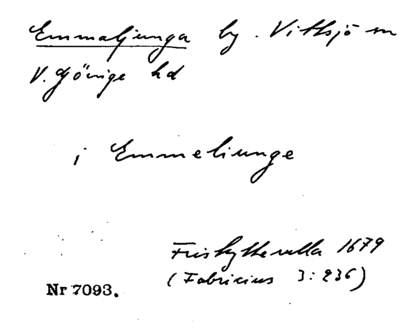 Emmaljunga by. Vittsjö sn
V. Göinge hd
i Emmeliunge
Friskytterulla 1679
(Fabricius 3:236)
Nr 7093.